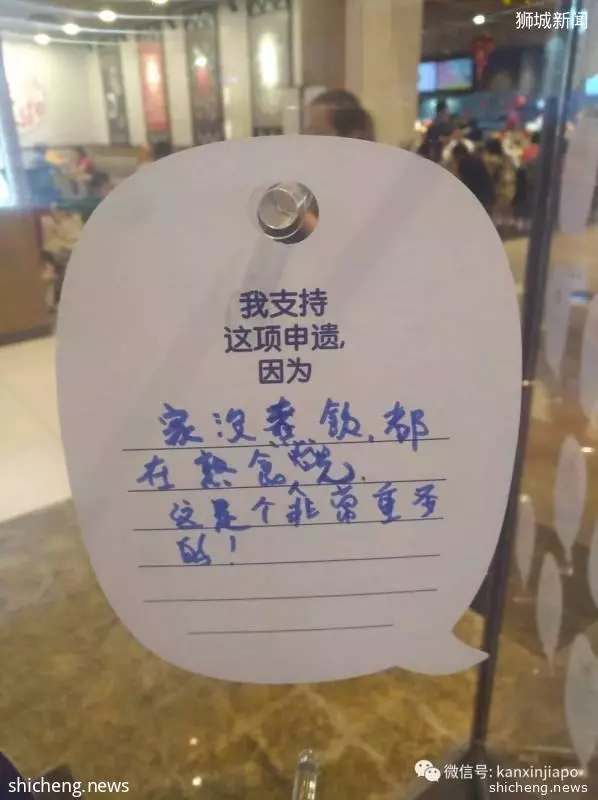 狮城新闻
我支持
这项申遗,
因为
家没煮飯,都
在熟食
这是个非常重要
的!
微信号: kanxinjiapo
shicheng.news
shicheng.news